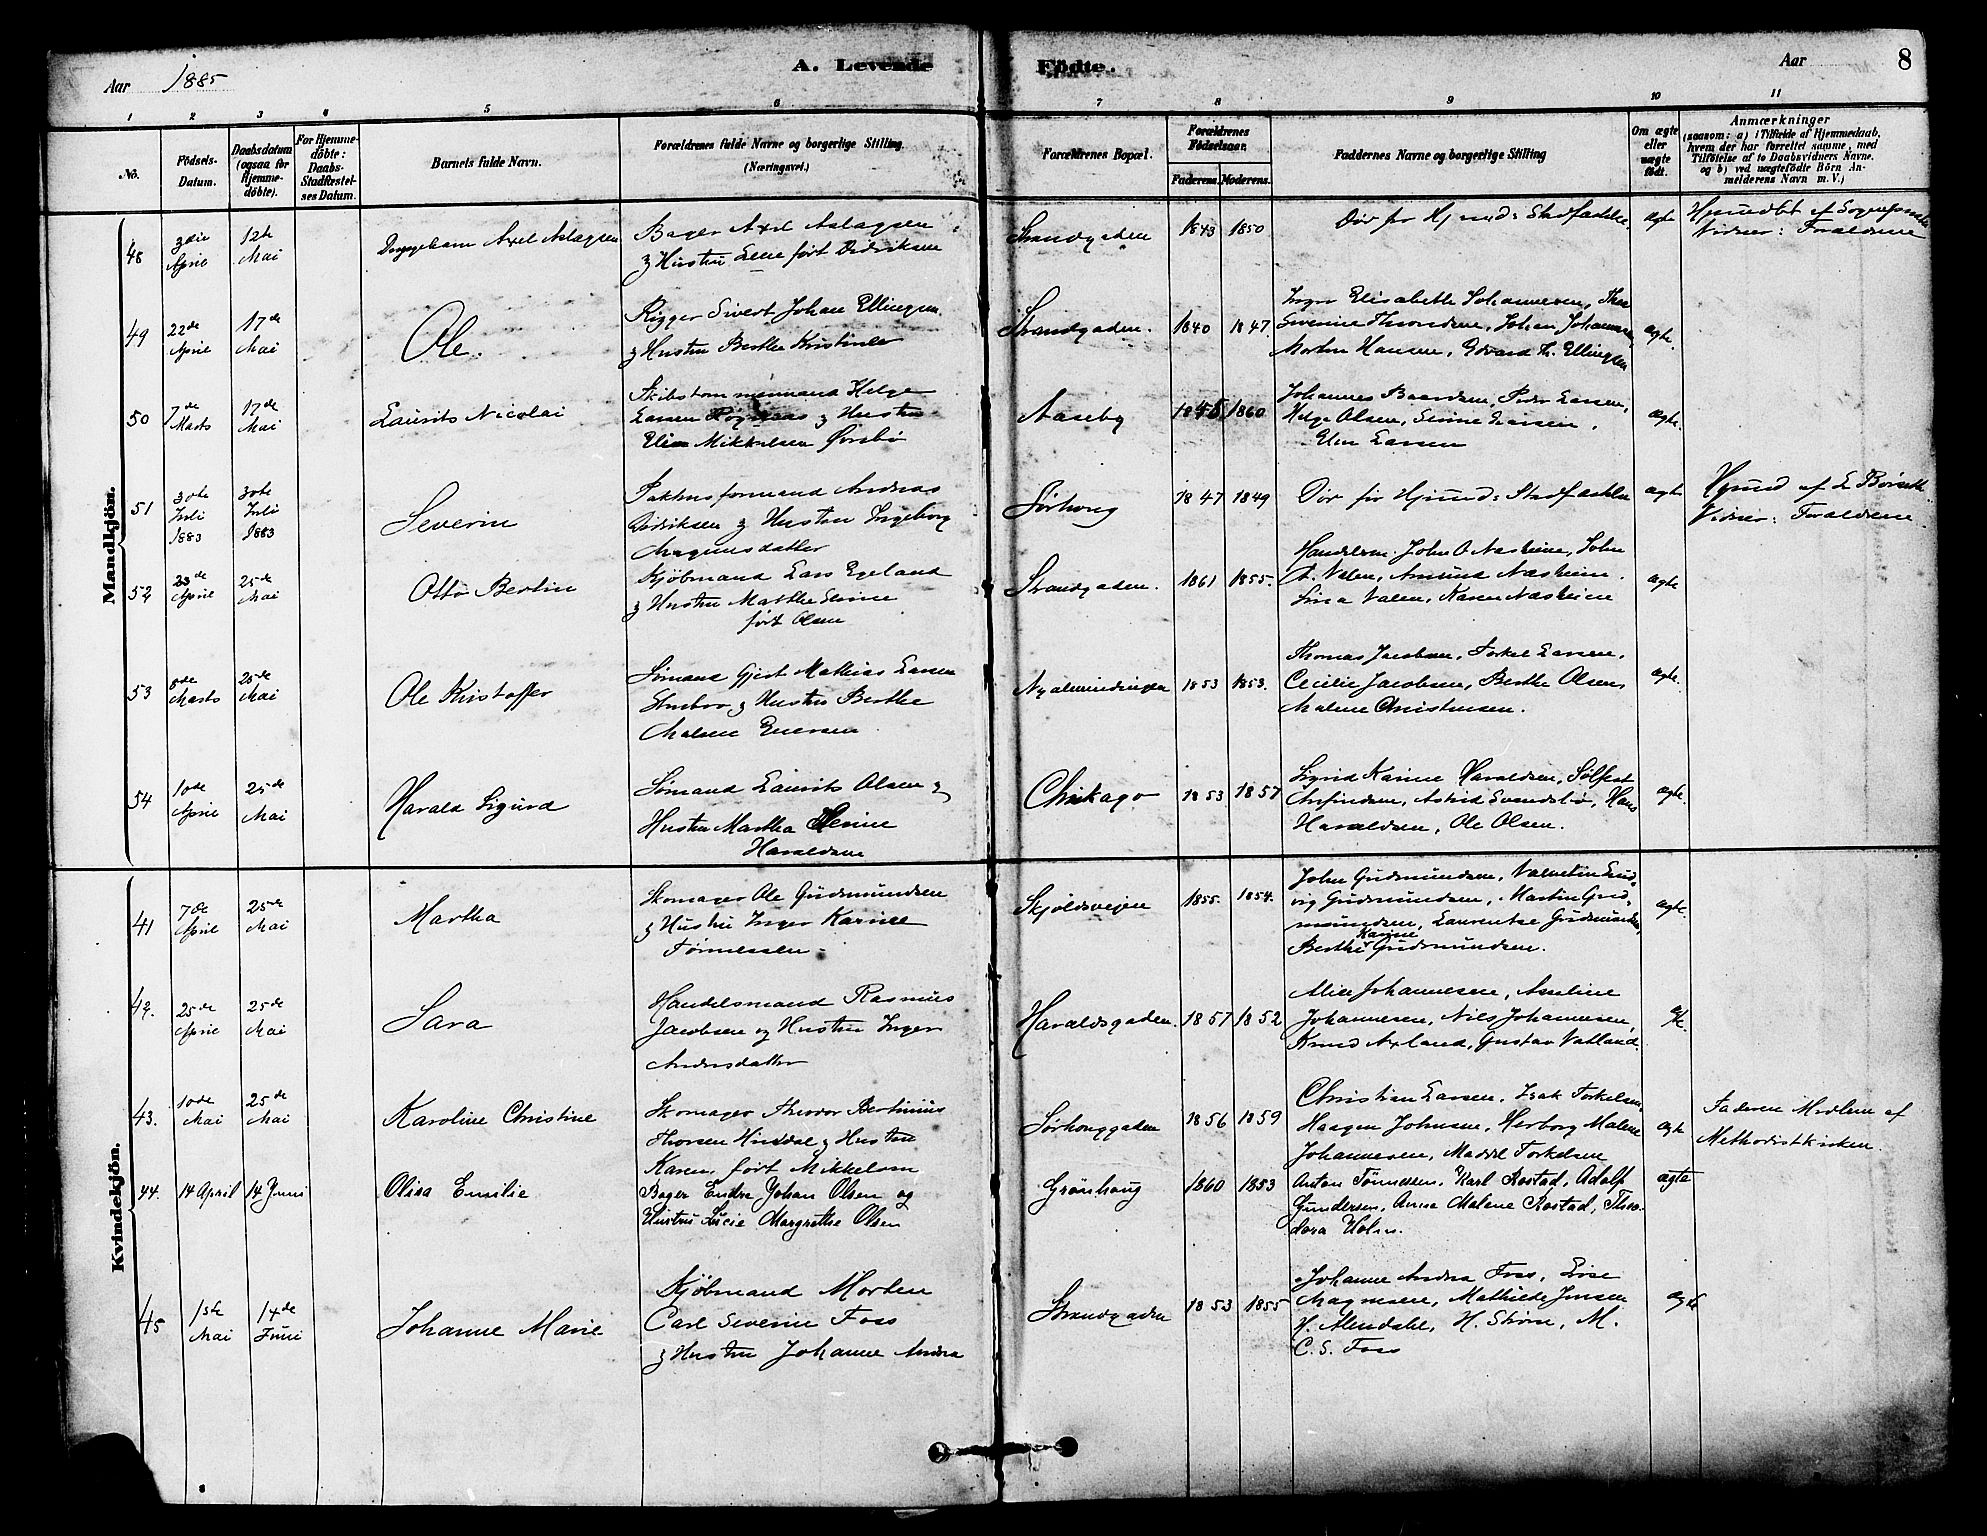 Aar 1885
A. Levende Födte.
Aar
8
1 2 3 4 5 6 7 8 9 10 11
No.
Födsels-Datum.
Daabsdatum (ogsaa for Hjemme-döbte).
For Hjemme-döbte: Daabs-Stadfæstel-ses Datum.
Barnets fulde Navn.
Forældrenes fulde Navne og borgerlige Stilling. (Næringsvei.)
Forældrenes Bopæl.
Forældrenes Födselsaar.
Faderens. Moderens.
Faddernes Navne og borgerlige Stilling
Om ægte eller uægte födt.
Anmærkninger
(saasom: a) i Tilfælde af Hjemmedaab, hvem der har forrettet samme, med Tilföielse af to Daabsvidners Navne, og b) ved uægtefödte Börn An-melderens Navn m. V.)
Mandkjön.
48
3die April
12te Mai
Axel Aslagsen
Bager Axel Aslagsen
& Hustru Lene født Didriksen
Strandgaden
1843 1850
Død før Hjmd: Stadfæstelse
ægte
Hjmdøbt af Sognepresten
Vidner: Forældrene
49
22de April
17de Mai
Ole.
Rigger Sivert Johan Ellingsen
& Hustru Berthe Kristine
Strandgaden.
1840 1847.
Inger Elisabeth Johannesen,
Severine Thorsdsen, Johan Johannesen,
Morten Hansen, Edvard Th. Ellingsen
ægte.
50
7de Marts
17de Mai
Laurits Nicolai
Skibstømmermand Helge
Larsen & Hustru
Elise Mikkelsen Ørsbø
Aaseby
1860
Johannes Baardsen, Peder Larsen,
Helge Olsen, Serine Larsen,
Elen Larsen
ægte.
51
30te Juli 1883
30te Juli 1883
Severin
Pakhusformand Andreas
Didriksen & Hustru Ingeborg
Magnusdatter
Sørhoug
1847 1849
Død før Hjmd: Stadfæstelse
ægte
Hjmd af L Børseth
Vidner: Forældrene
52
23de April
25de Mai
Otto Bertin
Kjøbmand Lars Egeland
& Hustru Marthe Serine
født Olsen
Strandgaden.
1861 1855.
Handelsm. John O. Næsheim, John
A. Valen, Amund Næsheim.
Lina Valen, Karen Næsheim
ægte
53
8de Marts
25de Mai
Ole Kristoffer
Sømand Gjert Mathias Larsen
& Hustru Berthe
Malene Enersen
Nyalmindingen
1853 1853.
Thomas Jacobsen, Torkel Larsen,
Cecilie Jacobsen, Berthe Olsen,
Malene Christensen.
ægte.
54
10de April
25de Mai
Harald Sigurd
Sømand Laurits Olsen &
Hustru Martha Elerine
Haraldsen
Chikago
1853 1857
Sigrid Karine Haraldsen, Sølfest
Arfindsen, Astrid Svendsbø, Hans
Haraldsen, Ole Olsen.
ægte.
Kvindekjön.
41
7de April
25de Mai
Martha
Skomager Ole Gudmundsen
& Hustru Inger Karine
Tønnessen
Skjoldsveien
1855. 1854.
John Gudmundsen, Valentin Lud-
vig Gudmundsen, Martin Gud-
mundsen, Laurentse Gudmundsen,
Berthe Karine Gudmundsen.
ægte.
42.
25de April
25de Mai
Sara
Handelsmand Rasmus
Jacobsen og Hustru Inger
Andersdatter
Haraldsgaden.
1857 1852
Alice Johannesen, Aseline
Johannesen, Nils Johannesen,
Knud Axland, Gustav Vatland.
43.
10de Mai
25de Mai
Karoline Christine
Skomager Theodor Bertinius
Thorsen Hinddal & Hustru
Karen, født Mikkelsen
Sørhouggaden
1856 1859
Christian Larsen, Isak Torkelsen,
Haagen Johnsen, Herborg Malene
Johannesen, Maddel Torkelsen
ægte
Faderen Medlem af
Methodistkirken.
44.
14 April
14 Juni
Olisa Emilie
Bager Endre Johan Olsen og
Hustru Lucie Margrethe Olsen
Grønhaug
1860 1853
Anton Tönnesen, Karl Rostad, Adolf
Gundersen, Anna Malene Rostad, Theo-
dora Holm.
ægte
45
1ste Mai
14de Juni
Johanne Marie
Kjöbmand Morten
Carl Severin Foss
& Hustru Johanne Andrea
Strandgaden
1853 1855
Johanne Andrea Foss, Lise
Magnesen, Mathilde Jensen
H. Alendahl, H. Strøm, M.
C. S. Foss
ægte